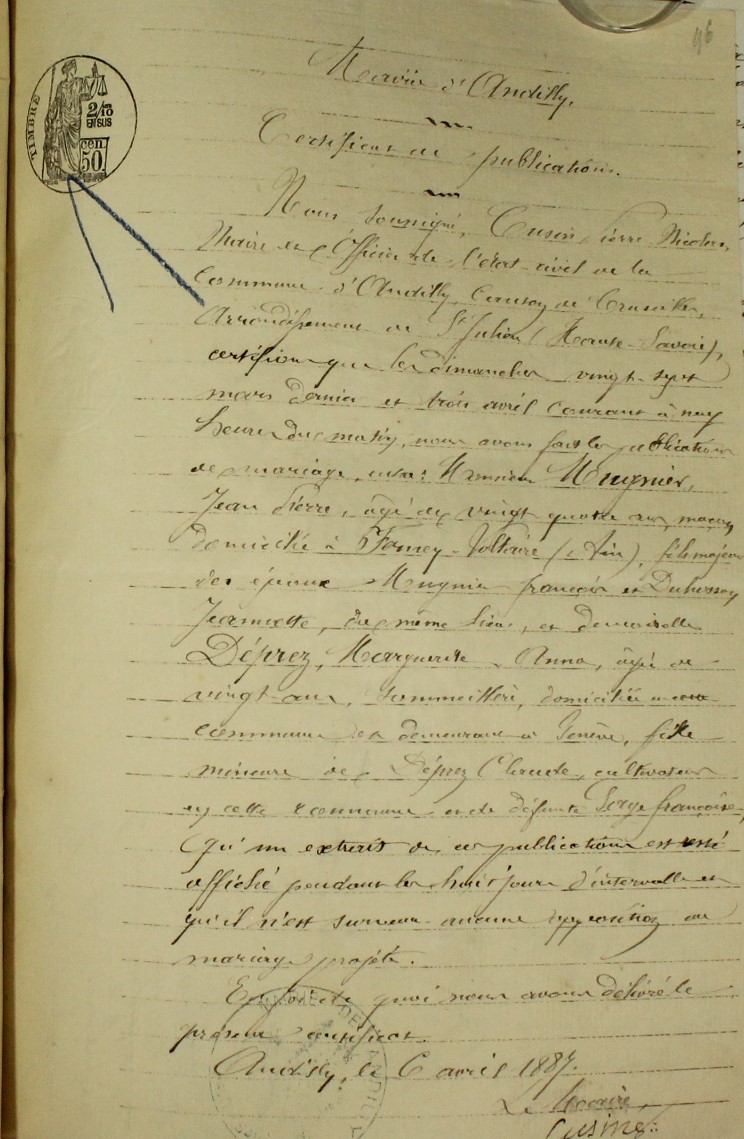 46
Mairie d'Andilly.
Certificat de publications.
TIMBRE
2/10
EN SUS
cen.
50.
Nous soussigné, Cusin Pierre Nicolas,
Maire et Officier de l'état-civil de la
Commune d'Andilly, Canton de Cruseilles,
Arrondissement de St Julien (Haute-Savoie),
certifions que les dimanches vingt-sept
mars dernier et trois avril courant à neuf
heures du matin, nous avons fait les publications
de mariage, entre: Monsieur Mugnier,
Jean Pierre, âgé de vingt quatre ans, maçon,
domicilié à Ferney-Voltaire (Ain), fils majeur
des époux Mugnier françois et
Jeannette, du même lieu, et demoiselle
Déprez, Marguerite Anna, âgée de
vingt ans, sommeillère, domiciliée en cette
commune et demeurant à Genève, fille
mineure de Déprez Claude, cultivateur
en cette commune et de défunte Serge françoise,
Qu'un extrait de ces publications est resté
affiché pendant les huit jours d'intervalle et
qu'il n'est survenu aucune opposition au
mariage projeté.
En foi de quoi nous avons délivré le
présent certificat.
Andilly, le 6 avril 1887.
Le Maire,
Cusin